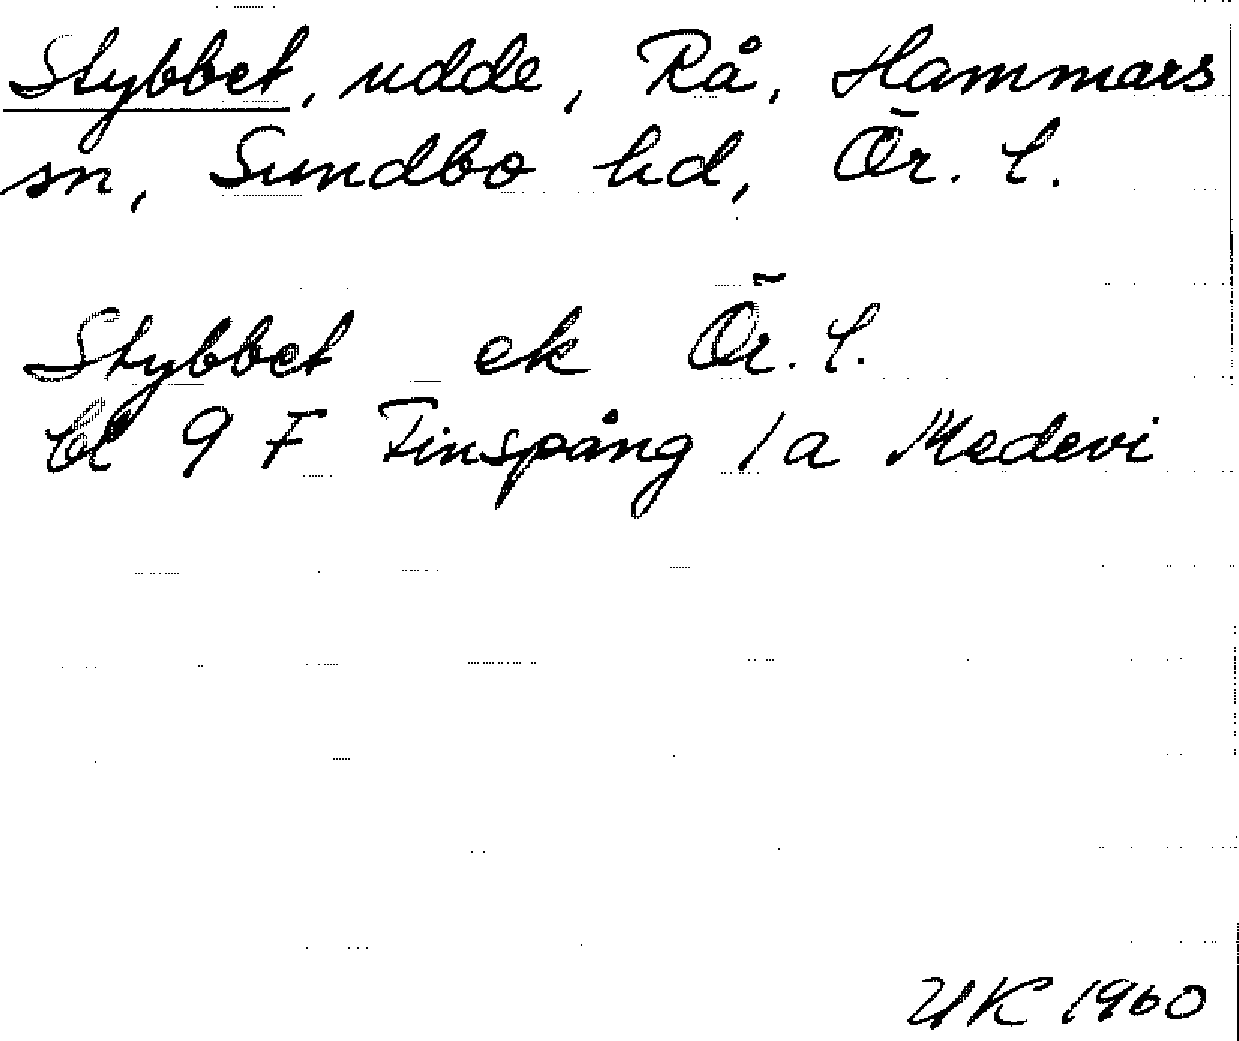 Stybbet, udde, Rå, Hammars
sn, Sundbo hd, Ör. l.
Stybbet ek Ör. l.
bl 9 F Finspång 1a Medevi
UK 1960